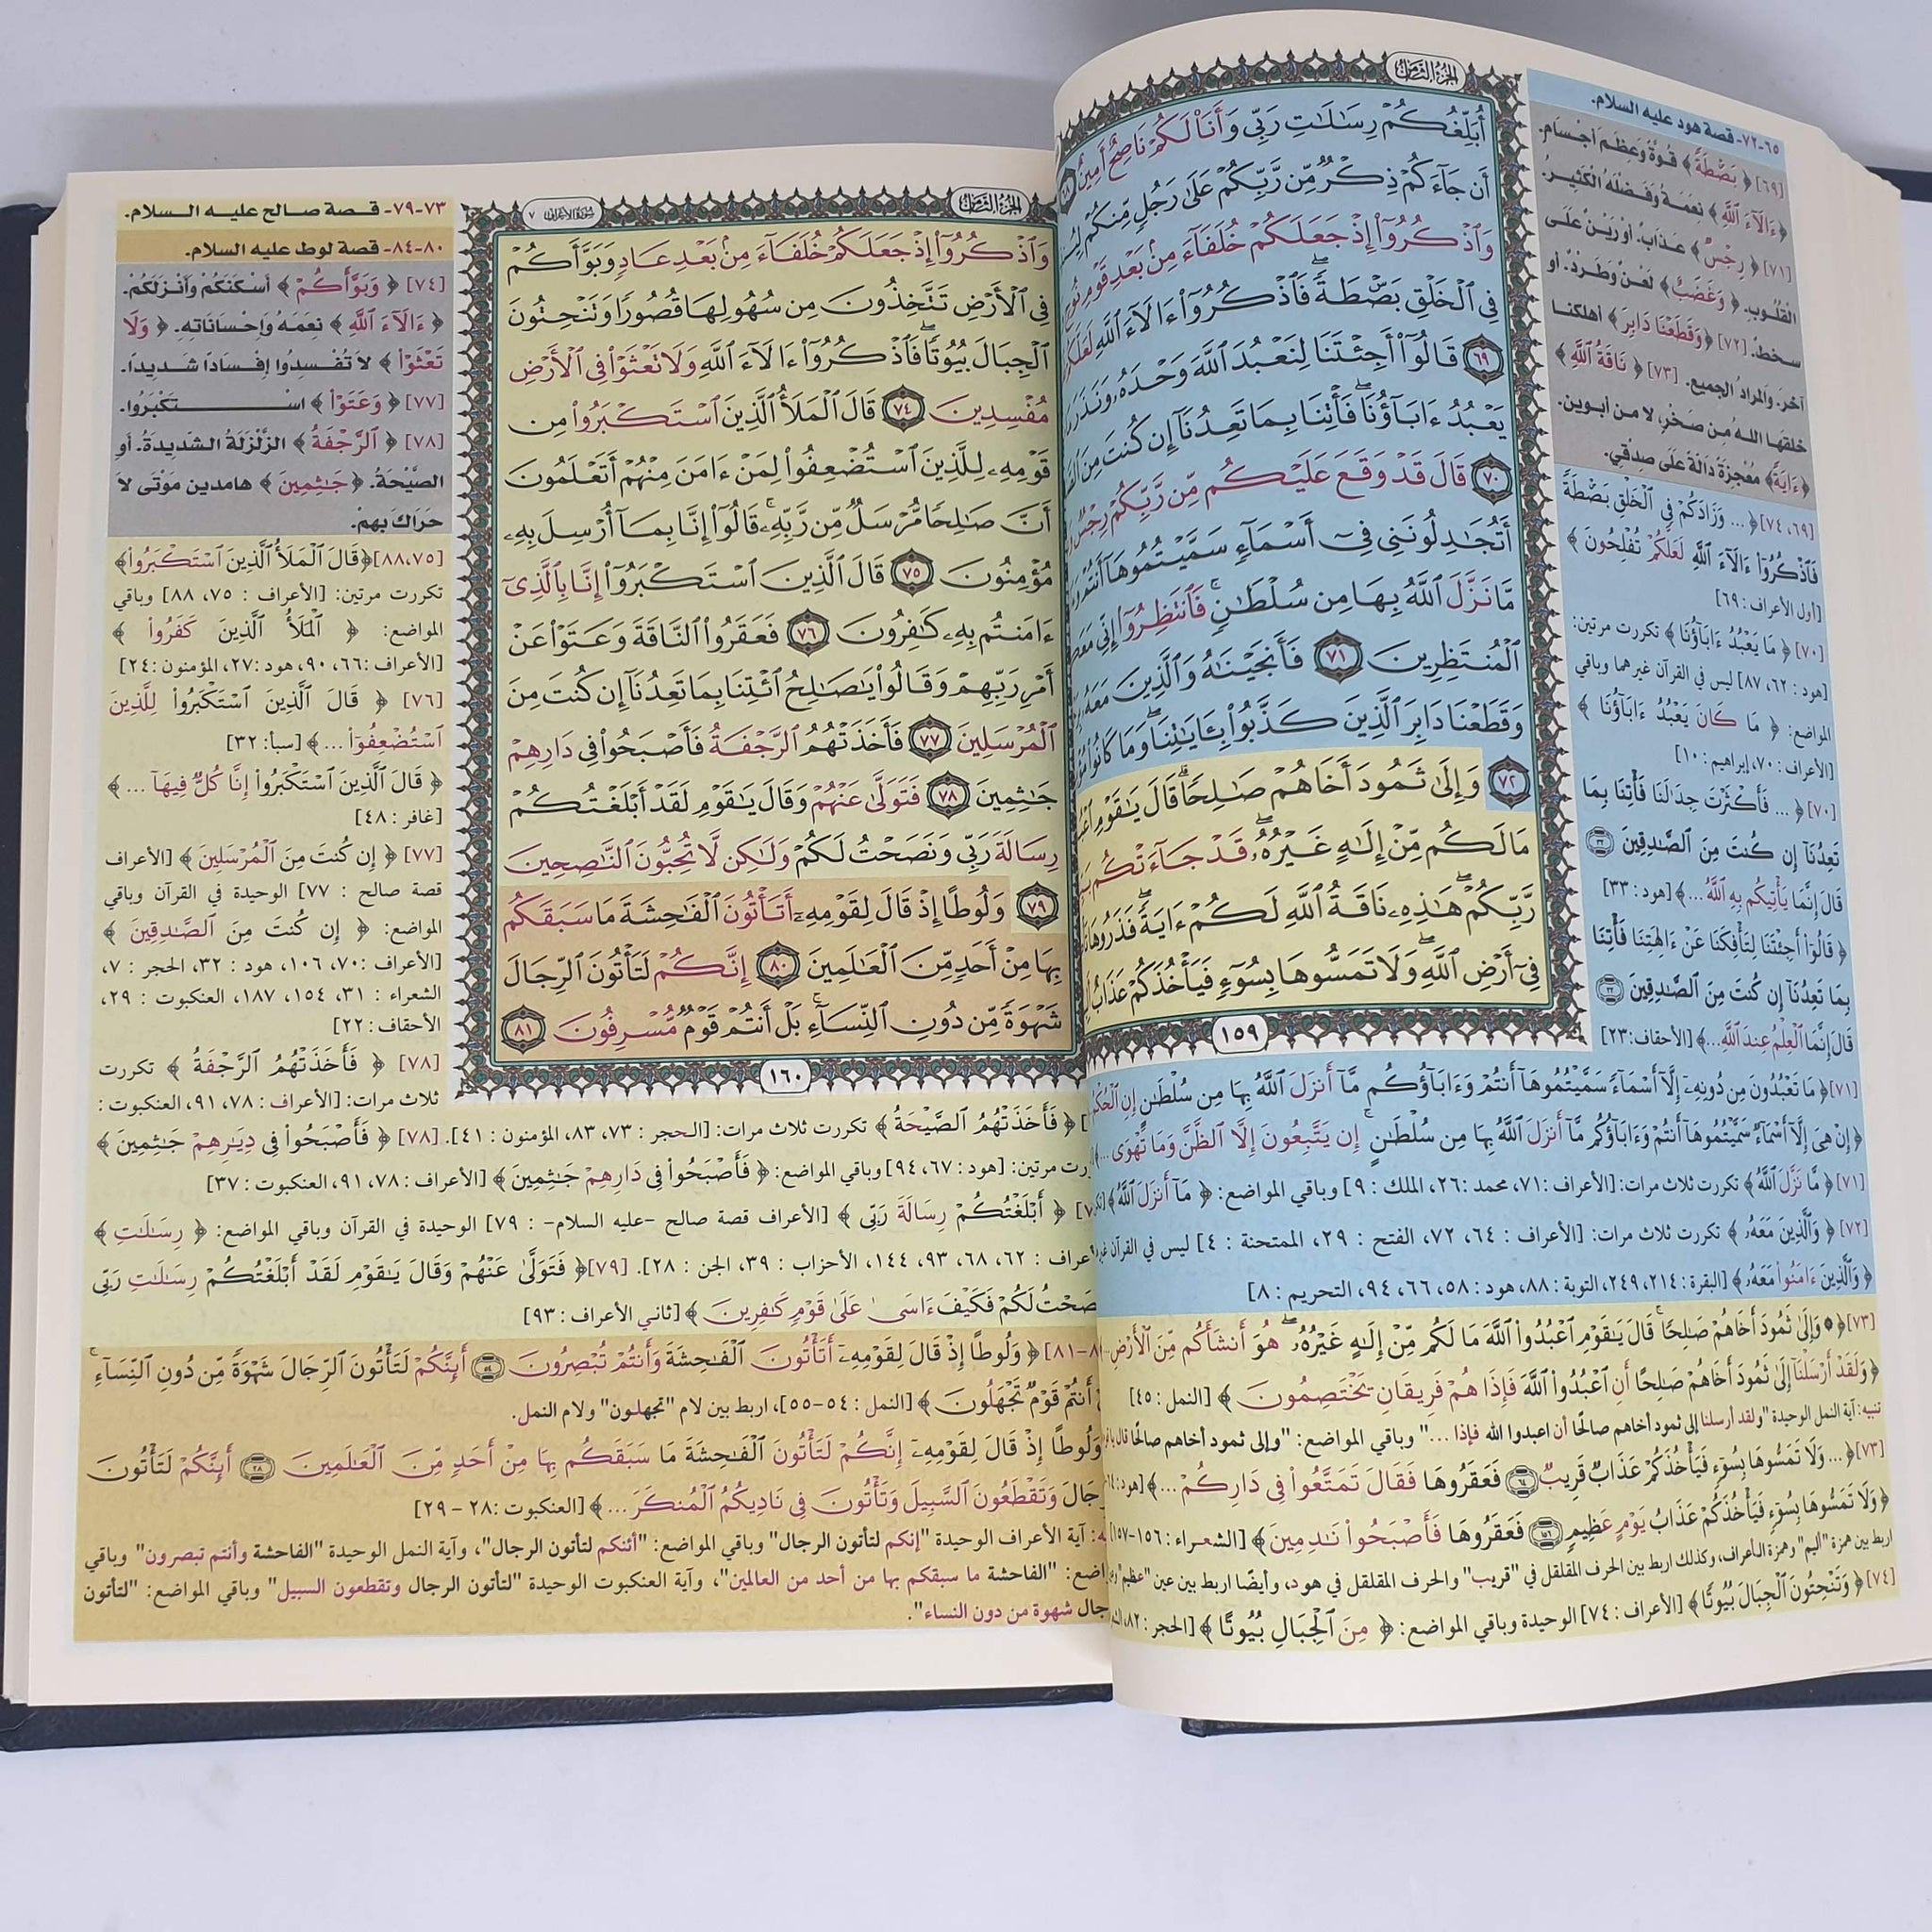 الجزء الثامن
٦٥-٧٢- قصة هود عليه السلام.
[٦٩] ﴿ بَصْۜطَةً ﴾ قُوَّةً وَعِظَمَ أَجْسَامٍ.
﴿ ءَالَآءَ ٱللَّهِ ﴾ نِعَمَهُ وَفَضْلَهُ الكَثِيرَ.
[٧١] ﴿ رِجْسٌ ﴾ عَذَابٌ. أو رَيْنٌ عَلَى
القُلُوبِ. ﴿ وَغَضَبٌ ﴾ لَعْنٌ وَطَرْدٌ. أو
سخطٌ. [٧٢] ﴿ وَقَطَعْنَا دَابِرَ ﴾ أهلكنا
آخرَ. وَالمرادُ الجميع. [٧٣] ﴿ نَاقَةُ ٱللَّهِ ﴾
خلقها اللهُ من صَخْرٍ، لا من أبوين.
﴿ ءَايَةً ﴾ مُعْجِزَةً دَالَّةً عَلَى صدقي.
أُبَلِّغُكُمْ رِسَٰلَٰتِ رَبِّى وَأَنَا۠ لَكُمْ نَاصِحٌ أَمِينٌ ٦٨
أَن جَآءَكُمْ ذِكْرٌ مِّن رَّبِّكُمْ عَلَىٰ رَجُلٍ مِّنكُمْ
وَٱذْكُرُوٓا۟ إِذْ جَعَلَكُمْ خُلَفَآءَ مِنۢ بَعْدِ قَوْمِ نُوحٍ
فِى ٱلْخَلْقِ بَصْۜطَةً ۖ فَٱذْكُرُوٓا۟ ءَالَآءَ ٱللَّهِ لَعَلَّكُمْ
٦٩ قَالُوٓا۟ أَجِئْتَنَا لِنَعْبُدَ ٱللَّهَ وَحْدَهُۥ وَنَذَرَ مَا
يَعْبُدُ ءَابَآؤُنَا ۖ فَأْتِنَا بِمَا تَعِدُنَآ إِن كُنتَ مِنَ
٧٠ قَالَ قَدْ وَقَعَ عَلَيْكُم مِّن رَّبِّكُمْ رِجْسٌ
أَتُجَٰدِلُونَنِى فِىٓ أَسْمَآءٍ سَمَّيْتُمُوهَآ أَنتُمْ
مَّا نَزَّلَ ٱللَّهُ بِهَا مِن سُلْطَٰنٍ ۚ فَٱنتَظِرُوٓا۟ إِنِّى مَعَكُم
ٱلْمُنتَظِرِينَ ٧١ فَأَنجَيْنَٰهُ وَٱلَّذِينَ مَعَهُۥ
وَقَطَعْنَا دَابِرَ ٱلَّذِينَ كَذَّبُوا۟ بِـَٔايَٰتِنَا ۖ وَمَا كَانُوا۟
٧٢ وَإِلَىٰ ثَمُودَ أَخَاهُمْ صَٰلِحًا ۗ قَالَ يَٰقَوْمِ
مَا لَكُم مِّنْ إِلَٰهٍ غَيْرُهُۥ ۖ قَدْ جَآءَتْكُم
رَّبِّكُمْ ۖ هَٰذِهِۦ نَاقَةُ ٱللَّهِ لَكُمْ ءَايَةً ۖ فَذَرُوهَا
فِىٓ أَرْضِ ٱللَّهِ ۖ وَلَا تَمَسُّوهَا بِسُوٓءٍ فَيَأْخُذَكُمْ عَذَابٌ
١٥٩
[٦٩، ٧٤] ﴿ ... وَزَادَكُمْ فِى ٱلْخَلْقِ بَصْۜطَةً
فَٱذْكُرُوٓا۟ ءَالَآءَ ٱللَّهِ لَعَلَّكُمْ تُفْلِحُونَ ﴾
[أول الأعراف : ٦٩]
[٧٠] ﴿ مَا يَعْبُدُ ءَابَآؤُنَا ﴾ تكررت مرتين:
[هود : ٦٢، ٨٧] ليس في القرآن غيرهما وباقي
المواضع: ﴿ مَا كَانَ يَعْبُدُ ءَابَآؤُنَا ﴾
[الأعراف : ٧٠، إبراهيم : ١٠]
[٧٠] ﴿ ... فَأَكْثَرْتَ جِدَٰلَنَا فَأْتِنَا بِمَا
تَعِدُنَآ إِن كُنتَ مِنَ ٱلصَّٰدِقِينَ ٣٢
قَالَ إِنَّمَا يَأْتِيكُم بِهِ ٱللَّهُ ... ﴾ [هود : ٣٣]
﴿ قَالُوٓا۟ أَجِئْتَنَا لِتَأْفِكَنَا عَنْ ءَالِهَتِنَا فَأْتِنَا
بِمَا تَعِدُنَآ إِن كُنتَ مِنَ ٱلصَّٰدِقِينَ ٢٢
قَالَ إِنَّمَا ٱلْعِلْمُ عِندَ ٱللَّهِ ... ﴾ [الأحقاف: ٢٣]
[٧١] ﴿ مَا تَعْبُدُونَ مِن دُونِهِۦٓ إِلَّآ أَسْمَآءً سَمَّيْتُمُوهَآ أَنتُمْ وَءَابَآؤُكُم مَّآ أَنزَلَ ٱللَّهُ بِهَا مِن سُلْطَٰنٍ إِنِ ٱلْحُكْمُ
﴿ إِنْ هِىَ إِلَّآ أَسْمَآءٌ سَمَّيْتُمُوهَآ أَنتُمْ وَءَابَآؤُكُم مَّآ أَنزَلَ ٱللَّهُ بِهَا مِن سُلْطَٰنٍ ۚ إِن يَتَّبِعُونَ إِلَّا ٱلظَّنَّ وَمَا تَهْوَى ... ﴾
[٧١] ﴿ مَّا نَزَّلَ ٱللَّهُ ﴾ تكررت ثلاث مرات: [الأعراف : ٧١، محمد : ٢٦، الملك : ٩] وباقي المواضع: ﴿ مَآ أَنزَلَ ٱللَّهُ ﴾
[٧٢] ﴿ وَٱلَّذِينَ مَعَهُۥ ﴾ تكررت ثلاث مرات: [الأعراف : ٦٤، ٧٢، الفتح : ٢٩، الممتحنة : ٤] ليس في القرآن
﴿ وَٱلَّذِينَ ءَامَنُوا۟ مَعَهُۥ ﴾ [البقرة : ٢١٤، ٢٤٩، التوبة : ٨٨، هود : ٥٨، ٦٦، ٩٤، التحريم : ٨]
[٧٣] ﴿ ۞ وَإِلَىٰ ثَمُودَ أَخَاهُمْ صَٰلِحًا ۚ قَالَ يَٰقَوْمِ ٱعْبُدُوا۟ ٱللَّهَ مَا لَكُم مِّنْ إِلَٰهٍ غَيْرُهُۥ ۖ هُوَ أَنشَأَكُم مِّنَ ٱلْأَرْضِ
﴿ وَلَقَدْ أَرْسَلْنَآ إِلَىٰ ثَمُودَ أَخَاهُمْ صَٰلِحًا أَنِ ٱعْبُدُوا۟ ٱللَّهَ فَإِذَا هُمْ فَرِيقَانِ يَخْتَصِمُونَ ﴾ [النمل : ٤٥]
تنبيه: آية النمل الوحيدة "ولقد أرسلنا إلى ثمود أخاهم صالحًا أن اعبدوا الله فإذا ..." وباقي المواضع: "وإلى ثمود أخاهم صالحًا قال
[٧٣] ﴿ ... وَلَا تَمَسُّوهَا بِسُوٓءٍ فَيَأْخُذَكُمْ عَذَابٌ قَرِيبٌ ٦٤ فَعَقَرُوهَا فَقَالَ تَمَتَّعُوا۟ فِى دَارِكُمْ ... ﴾ [هود:
﴿ وَلَا تَمَسُّوهَا بِسُوٓءٍ فَيَأْخُذَكُمْ عَذَابُ يَوْمٍ عَظِيمٍ ١٥٦ فَعَقَرُوهَا فَأَصْبَحُوا۟ نَٰدِمِينَ ﴾ [الشعراء : ١٥٦-١٥٧]
اربط بين همزة "أليم" وهمزة الأعراف، وكذلك اربط بين الحرف المقلقل في "قريب" والحرف المقلقل في هود، وأيضًا اربط بين عين "عظيم"
[٧٤] ﴿ وَتَنْحِتُونَ ٱلْجِبَالَ بُيُوتًا ﴾ [الأعراف : ٧٤] الوحيدة وباقي المواضع: ﴿ مِنَ ٱلْجِبَالِ بُيُوتًا ﴾ [الحجر : ٨٢،
الجزء الثامن
سورة الأعراف ٧
٧٣-٧٩- قصة صالح عليه السلام.
٨٠-٨٤- قصة لوط عليه السلام.
[٧٤] ﴿ وَبَوَّأَكُمْ ﴾ أَسْكَنَكُمْ وَأَنْزَلَكُمْ.
﴿ ءَالَآءَ ٱللَّهِ ﴾ نِعَمَهُ وَإِحْسَانَاتِهِ. ﴿ وَلَا
تَعْثَوْا۟ ﴾ لَا تُفْسِدُوا إِفْسَادًا شَدِيدًا.
[٧٧] ﴿ وَعَتَوْا۟ ﴾ اسْتَكْبَرُوا.
[٧٨] ﴿ ٱلرَّجْفَةُ ﴾ الزَّلْزَلَةُ الشَّدِيدَةُ. أو
الصَّيْحَةُ. ﴿ جَٰثِمِينَ ﴾ هامدين مَوْتَى لَا
حَرَاكَ بِهِمْ.
وَٱذْكُرُوٓا۟ إِذْ جَعَلَكُمْ خُلَفَآءَ مِنۢ بَعْدِ عَادٍ وَبَوَّأَكُمْ
فِى ٱلْأَرْضِ تَتَّخِذُونَ مِن سُهُولِهَا قُصُورًا وَتَنْحِتُونَ
ٱلْجِبَالَ بُيُوتًا ۖ فَٱذْكُرُوٓا۟ ءَالَآءَ ٱللَّهِ وَلَا تَعْثَوْا۟ فِى ٱلْأَرْضِ
مُفْسِدِينَ ٧٤ قَالَ ٱلْمَلَأُ ٱلَّذِينَ ٱسْتَكْبَرُوا۟ مِن
قَوْمِهِۦ لِلَّذِينَ ٱسْتُضْعِفُوا۟ لِمَنْ ءَامَنَ مِنْهُمْ أَتَعْلَمُونَ
أَنَّ صَٰلِحًا مُّرْسَلٌ مِّن رَّبِّهِۦ ۚ قَالُوٓا۟ إِنَّا بِمَآ أُرْسِلَ بِهِۦ
مُؤْمِنُونَ ٧٥ قَالَ ٱلَّذِينَ ٱسْتَكْبَرُوٓا۟ إِنَّا بِٱلَّذِىٓ
ءَامَنتُم بِهِۦ كَٰفِرُونَ ٧٦ فَعَقَرُوا۟ ٱلنَّاقَةَ وَعَتَوْا۟ عَنْ
أَمْرِ رَبِّهِمْ وَقَالُوا۟ يَٰصَٰلِحُ ٱئْتِنَا بِمَا تَعِدُنَآ إِن كُنتَ مِنَ
ٱلْمُرْسَلِينَ ٧٧ فَأَخَذَتْهُمُ ٱلرَّجْفَةُ فَأَصْبَحُوا۟ فِى دَارِهِمْ
جَٰثِمِينَ ٧٨ فَتَوَلَّىٰ عَنْهُمْ وَقَالَ يَٰقَوْمِ لَقَدْ أَبْلَغْتُكُمْ
رِسَالَةَ رَبِّى وَنَصَحْتُ لَكُمْ وَلَٰكِن لَّا تُحِبُّونَ ٱلنَّٰصِحِينَ
٧٩ وَلُوطًا إِذْ قَالَ لِقَوْمِهِۦٓ أَتَأْتُونَ ٱلْفَٰحِشَةَ مَا سَبَقَكُم
بِهَا مِنْ أَحَدٍ مِّنَ ٱلْعَٰلَمِينَ ٨٠ إِنَّكُمْ لَتَأْتُونَ ٱلرِّجَالَ
شَهْوَةً مِّن دُونِ ٱلنِّسَآءِ ۚ بَلْ أَنتُمْ قَوْمٌ مُّسْرِفُونَ ٨١
١٦٠
[٧٥، ٨٨] ﴿ قَالَ ٱلْمَلَأُ ٱلَّذِينَ ٱسْتَكْبَرُوا۟ ﴾
تكررت مرتين: [الأعراف : ٧٥، ٨٨] وباقي
المواضع: ﴿ ٱلْمَلَأُ ٱلَّذِينَ كَفَرُوا۟ ﴾
[الأعراف : ٦٦، ٩٠، هود : ٢٧، المؤمنون : ٢٤]
[٧٦] ﴿ قَالَ ٱلَّذِينَ ٱسْتَكْبَرُوا۟ لِلَّذِينَ
ٱسْتُضْعِفُوٓا۟ ... ﴾ [سبأ: ٣٢]
﴿ قَالَ ٱلَّذِينَ ٱسْتَكْبَرُوٓا۟ إِنَّا كُلٌّ فِيهَآ ... ﴾
[غافر : ٤٨]
[٧٧] ﴿ إِن كُنتَ مِنَ ٱلْمُرْسَلِينَ ﴾ [الأعراف
قصة صالح : ٧٧] الوحيدة في القرآن وباقي
المواضع: ﴿ إِن كُنتَ مِنَ ٱلصَّٰدِقِينَ ﴾
[الأعراف : ٧٠، ١٠٦، هود : ٣٢، الحجر : ٧،
الشعراء : ٣١، ١٥٤، ١٨٧، العنكبوت : ٢٩،
الأحقاف : ٢٢]
[٧٨] ﴿ فَأَخَذَتْهُمُ ٱلرَّجْفَةُ ﴾ تكررت
ثلاث مرات: [الأعراف : ٧٨، ٩١، العنكبوت :
﴿ فَأَخَذَتْهُمُ ٱلصَّيْحَةُ ﴾ تكررت ثلاث مرات: [الحجر : ٧٣، ٨٣، المؤمنون : ٤١]. [٧٨] ﴿ فَأَصْبَحُوا۟ فِى دِيَٰرِهِمْ جَٰثِمِينَ ﴾
مرتين: [هود : ٦٧، ٩٤] وباقي المواضع: ﴿ فَأَصْبَحُوا۟ فِى دَارِهِمْ جَٰثِمِينَ ﴾ [الأعراف : ٧٨، ٩١، العنكبوت : ٣٧]
﴿ أَبْلَغْتُكُمْ رِسَالَةَ رَبِّى ﴾ [الأعراف قصة صالح -عليه السلام- : ٧٩] الوحيدة في القرآن وباقي المواضع: ﴿ رِسَٰلَٰتِ ﴾
: ٦٢، ٦٨، ٩٣، ١٤٤، الأحزاب : ٣٩، الجن : ٢٨]. [٧٩] ﴿ فَتَوَلَّىٰ عَنْهُمْ وَقَالَ يَٰقَوْمِ لَقَدْ أَبْلَغْتُكُمْ رِسَٰلَٰتِ رَبِّى
لَكُمْ فَكَيْفَ ءَاسَىٰ عَلَىٰ قَوْمٍ كَٰفِرِينَ ﴾ [ثاني الأعراف : ٩٣]
﴿ وَلُوطًا إِذْ قَالَ لِقَوْمِهِۦٓ أَتَأْتُونَ ٱلْفَٰحِشَةَ وَأَنتُمْ تُبْصِرُونَ ٥٤ أَئِنَّكُمْ لَتَأْتُونَ ٱلرِّجَالَ شَهْوَةً مِّن دُونِ ٱلنِّسَآءِ ۚ
أَنتُمْ قَوْمٌ تَجْهَلُونَ ﴾ [النمل : ٥٤-٥٥]، اربط بين لام "تجهلون" ولام النمل.
وَلُوطًا إِذْ قَالَ لِقَوْمِهِۦٓ إِنَّكُمْ لَتَأْتُونَ ٱلْفَٰحِشَةَ مَا سَبَقَكُم بِهَا مِنْ أَحَدٍ مِّنَ ٱلْعَٰلَمِينَ ٢٨ أَئِنَّكُمْ لَتَأْتُونَ
وَتَقْطَعُونَ ٱلسَّبِيلَ وَتَأْتُونَ فِى نَادِيكُمُ ٱلْمُنكَرَ ... ﴾ [العنكبوت : ٢٨ - ٢٩]
آية الأعراف الوحيدة "إنكم لتأتون الرجال" وباقي المواضع: "أئنكم لتأتون الرجال"، وآية النمل الوحيدة "الفاحشة وأنتم تبصرون" وباقي
"الفاحشة ما سبقكم بها من أحد من العالمين"، وآية العنكبوت الوحيدة "لتأتون الرجال وتقطعون السبيل" وباقي المواضع: "لتأتون
شهوة من دون النساء".